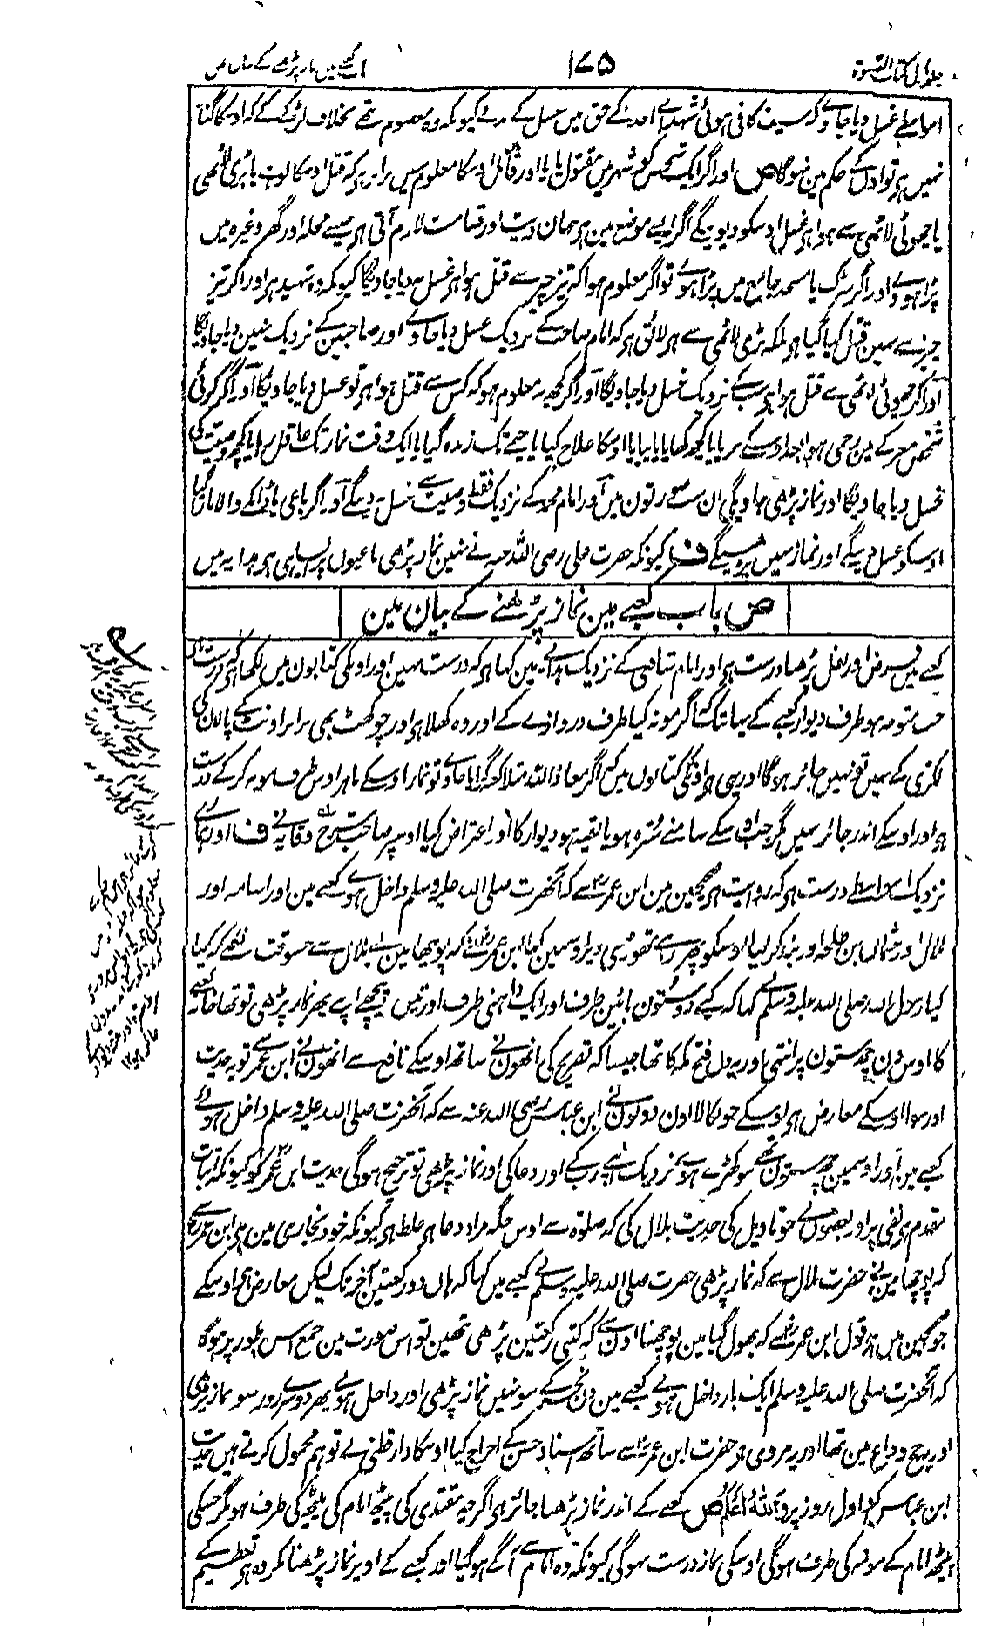 جلد اول کتاب الصلوۃ ۱۷۵ کعبے میں نماز پڑھنے کے بیان میں
نہیں ہر تو اول کے حکم مین نہوگا ص اور اگر ایک شخص کو شہر میں مقتول پایا اور قاتل اوسکا معلوم نہیں برابر ہر کہ قتل اوسکا لوہے یا بڑی لاٹھی
یا چھوٹی لاٹھی سے ہوا ہر غسل اوسکو دیوینگے اگر ایسے موضع مین ہر جہان دیت اور قسامت لازم آتی ہر جیسے محلہ اور گھر وغیرہ میں
پڑا ہووے اور اگر سڑک یا مسجد جامع میں پڑا ہووے تو اگر معلوم ہوا کہ تیز چیز سے قتل ہوا ہر غسل نہ دیا جاویگا کیونکہ وہ شہید ہر اور اگر تیز
چیز سے نہین قتل کیا گیا ہر بلکہ بڑی لاٹھی سے ہر لائق ہر کہ امام صاحب کے نزدیک غسل دیا جاوے اور صاحبین کے نزدیک نہین دیا جاویگا
اور اگر چھوٹی لاٹھی سے قتل ہوا ہر سب کے نزدیک غسل دیا جاویگا اور اگر کچھ نہ معلوم ہو کہ کس سے قتل ہوا ہر تو غسل دیا جاویگا اور اگر کوئی
شخص معرکے مین زخمی ہوا بعد اوسکے مرا یا کچھ کھایا یا پیا یا اوسکا علاج کیا یا خیمے تک زندہ گیا یا ایک وقت نماز تک عاقل رہا یا کچھ وصیت کی
غسل دیا جاویگا اور نماز پڑھی جاویگی ان سب صورتون میں اور امام محمد کے نزدیک فقط وصیت سے غسل نہ دینگے اور اگر باغی یا ڈاکے والا مارا گیا
اوسکو غسل دینگے اور نماز نہیں پڑھینگے ف کیونکہ حضرت علی رضی اللہ عنہ نے نہین نماز پڑھی باغیوں پر ایسا ہی ہر ہدایہ میں
ص باب کعبے مین نماز پڑھنے کے بیان مین
کعبے میں فرض اور نفل پڑھنا درست ہر اور امام شافعی کے نزدیک ہدایے مین کہا ہر کہ درست نہین اور اونکی کتابون میں لکھا ہر کہ درست ہر
جب متوجہ ہو طرف دیوار کعبے کے یہانتک کہ اگر مونہ کیا طرف دروازے کے اور وہ کھلا ہر اور چوکھٹ بھی برابر اونٹ کے پالان کی
لکڑی کے نہیں تو نہین جائز ہوگا اور یہی ہر اونکی کتابوں میں کہ اگر معاذ اللہ مثلا کعبہ گر جاوے تو نماز اوسکے باہر اوس طرف مونہ کر کے درست
ہر اور اوسکے اندر جائز نہیں مگر جب اوسکے سامنے سترہ ہو یا بقیہ ہو دیوار کا اور اعتراض کیا اوسپر صاحب شرح وقایہ نے ف اور ہمارے
نزدیک اسواسطے درست ہر کہ روایت ہر صحیحین مین ابن عمر سے کہ آنحضرت صلی اللہ علیہ وسلم داخل ہوے کعبے مین اور اسامہ اور
بلال اور عثمان ابن طلحہ اور بند کر لیا اوسکو پھر رہے تھوڑی دیر اوسمین کہا ابن عمر نے کہ پوچھا مین نے بلال سے جسوقت نکلے کہ کیا
کیا رسول اللہ صلی اللہ علیہ وسلم نے کہا کہ کیے دو ستون بائین طرف اور ایک داہنی طرف اور تین پیچھے اپنے پھر نماز پڑھی تو تھا خانہ کعبے
کا اوس دن چھ ستون پر انتہی اور یہ دن فتح مکہ کا تھا جیسا کہ تصریح کی انھون نے ساتھ اوسکے نافع سے انھون نے ابن عمر سے تو یہ حدیث
اور سوا اوسکے معارض ہر اوسکے جو نکالا اون دونون نے ابن عباس رضی اللہ عنہ سے کہ آنحضرت صلی اللہ علیہ وسلم داخل ہوئے
کعبے مین اور اوسمین چھ ستون تھے سو کھڑے ہوے نزدیک اپنے رب کے اور دعا کی اور نماز نہ پڑھی تو ترجیح ہوگی حدیث ابن عمر کو کیونکہ اثبات
مقدم ہر نفی پر اور بعضوں نے جو تاویل کی حدیث بلال کی کہ صلوۃ سے اوس جگہ مراد دعا ہر غلط ہر کیونکہ خود بخاری مین ہر ابن عمر سے
کہ پوچھا مین نے حضرت بلال سے کہ نماز پڑھی حضرت صلی اللہ علیہ وسلم نے کعبے میں کہا کہ ہاں دو رکعتین آخر تک لیکن معارض ہر اوسکے
جو صحیحین میں ہر قول ابن عمر سے کہ بھول گیا مین پوچھنا اون سے کہ کتنی رکعتین پڑھی تھین تو اس صورت مین جمع اس طور پر ہوگا
کہ آنحضرت صلی اللہ علیہ وسلم ایک بار داخل ہوئے کعبے مین دن نحر کے سو نہیں نماز پڑھی اور داخل ہوے پھر دوسرے روز سو نماز پڑھی
اور یہ حج وداع مین تھا اور یہ مروی ہر حضرت ابن عمر سے ساتھ اسناد حسن کے اخراج کیا اوسکا دارقطنی نے تو ہم محمول کرتے ہیں حدیث
ابن عباس کو اول روز پر واللہ اعلم ص کعبے کے اندر نماز پڑھنا جائز ہر اگرچہ مقتدی کی پیٹھ امام کی پیٹھ کی طرف ہو مگر جسکی
پیٹھ امام کے مونہ کی طرف ہوگی اوسکی نماز درست نہوگی کیونکہ وہ امام سے آگے ہو گیا اور کعبے کے اوپر نماز پڑھنا مکروہ ہر تعظیم کے